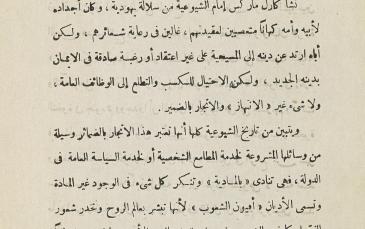 نشأ كارل ماركس إمام الشيوعية من سلالة يهودية ، وكان أجداده
لأبيه وأمه كهانًا متعصبين لعقيدتهم ، غالين فى رعاية شعائرهم ، ولكن
أباه ارتد عن دينه إلى المسيحية على غير اعتقاد أو رغبة صادقة فى الإيمان
بدينه الجديد ، ولكن الاحتيال للكسب والتطلع إلى الوظائف العامة ،
ولا شىء غير « الانتهاز » والاتجار بالضمير .
ويتبين من تاريخ الشيوعية كلها أنها تعتبر هذا الاتجار بالضمائر وسيلة
من وسائلها المشروعة لخدمة المطامع الشخصية أو لخدمة السياسة العامة فى
الدولة ، فهى تنادى « بالمادية » وتنكر كل شىء فى الوجود غير المادة
وتسمى الأديان « أفيون الشعوب » لأنها تبشر بعالم الروح وتخدر شعور